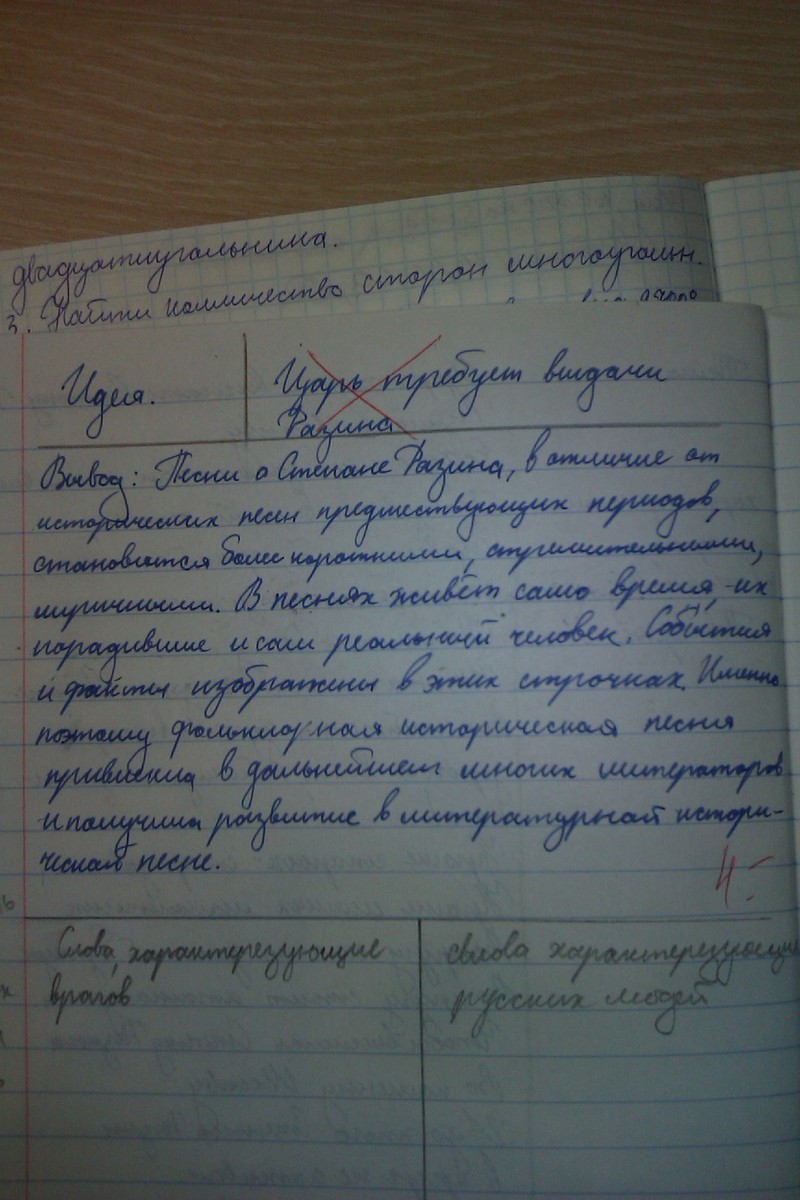 двадцатиугольника.
3. Найти количество сторон многоугольн.
Идея.
Царь требует выдачи
Разина
Вывод: Песни о Степане Разина, в отличие от
исторических песен предшествующих периодов,
становятся более короткими, стремительными,
лиричными. В песнях живёт само время, их
парадившие и сам реальный человек. События
и факты изображены в этих строчках. Именно
поэтому фольклорная историческая песня
привлекла в дальнейшем многих литераторов
и получила развитие в литературной истори-
ческой песне.
4-
Слова, характерезующие
врагов
слова характерезующие
русских людей